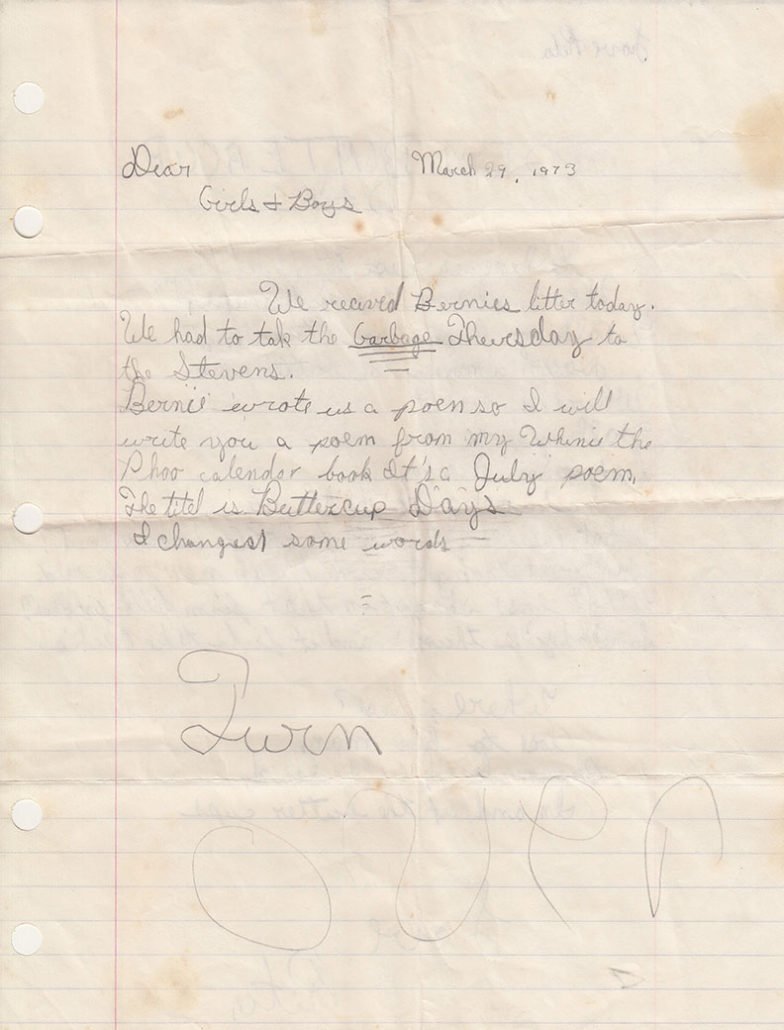 Dear March 29, 1973
Girls & Boys
We recived Bernies litter today.
We had to tak the Garbage Thursday to
the Stevens.
Bernie wrote us a poen so I will
write you a poem from my Whinie the
Phoo calendor book It's a July poem.
The titel is Buttercup Days
I changest some words
Turn
OVER